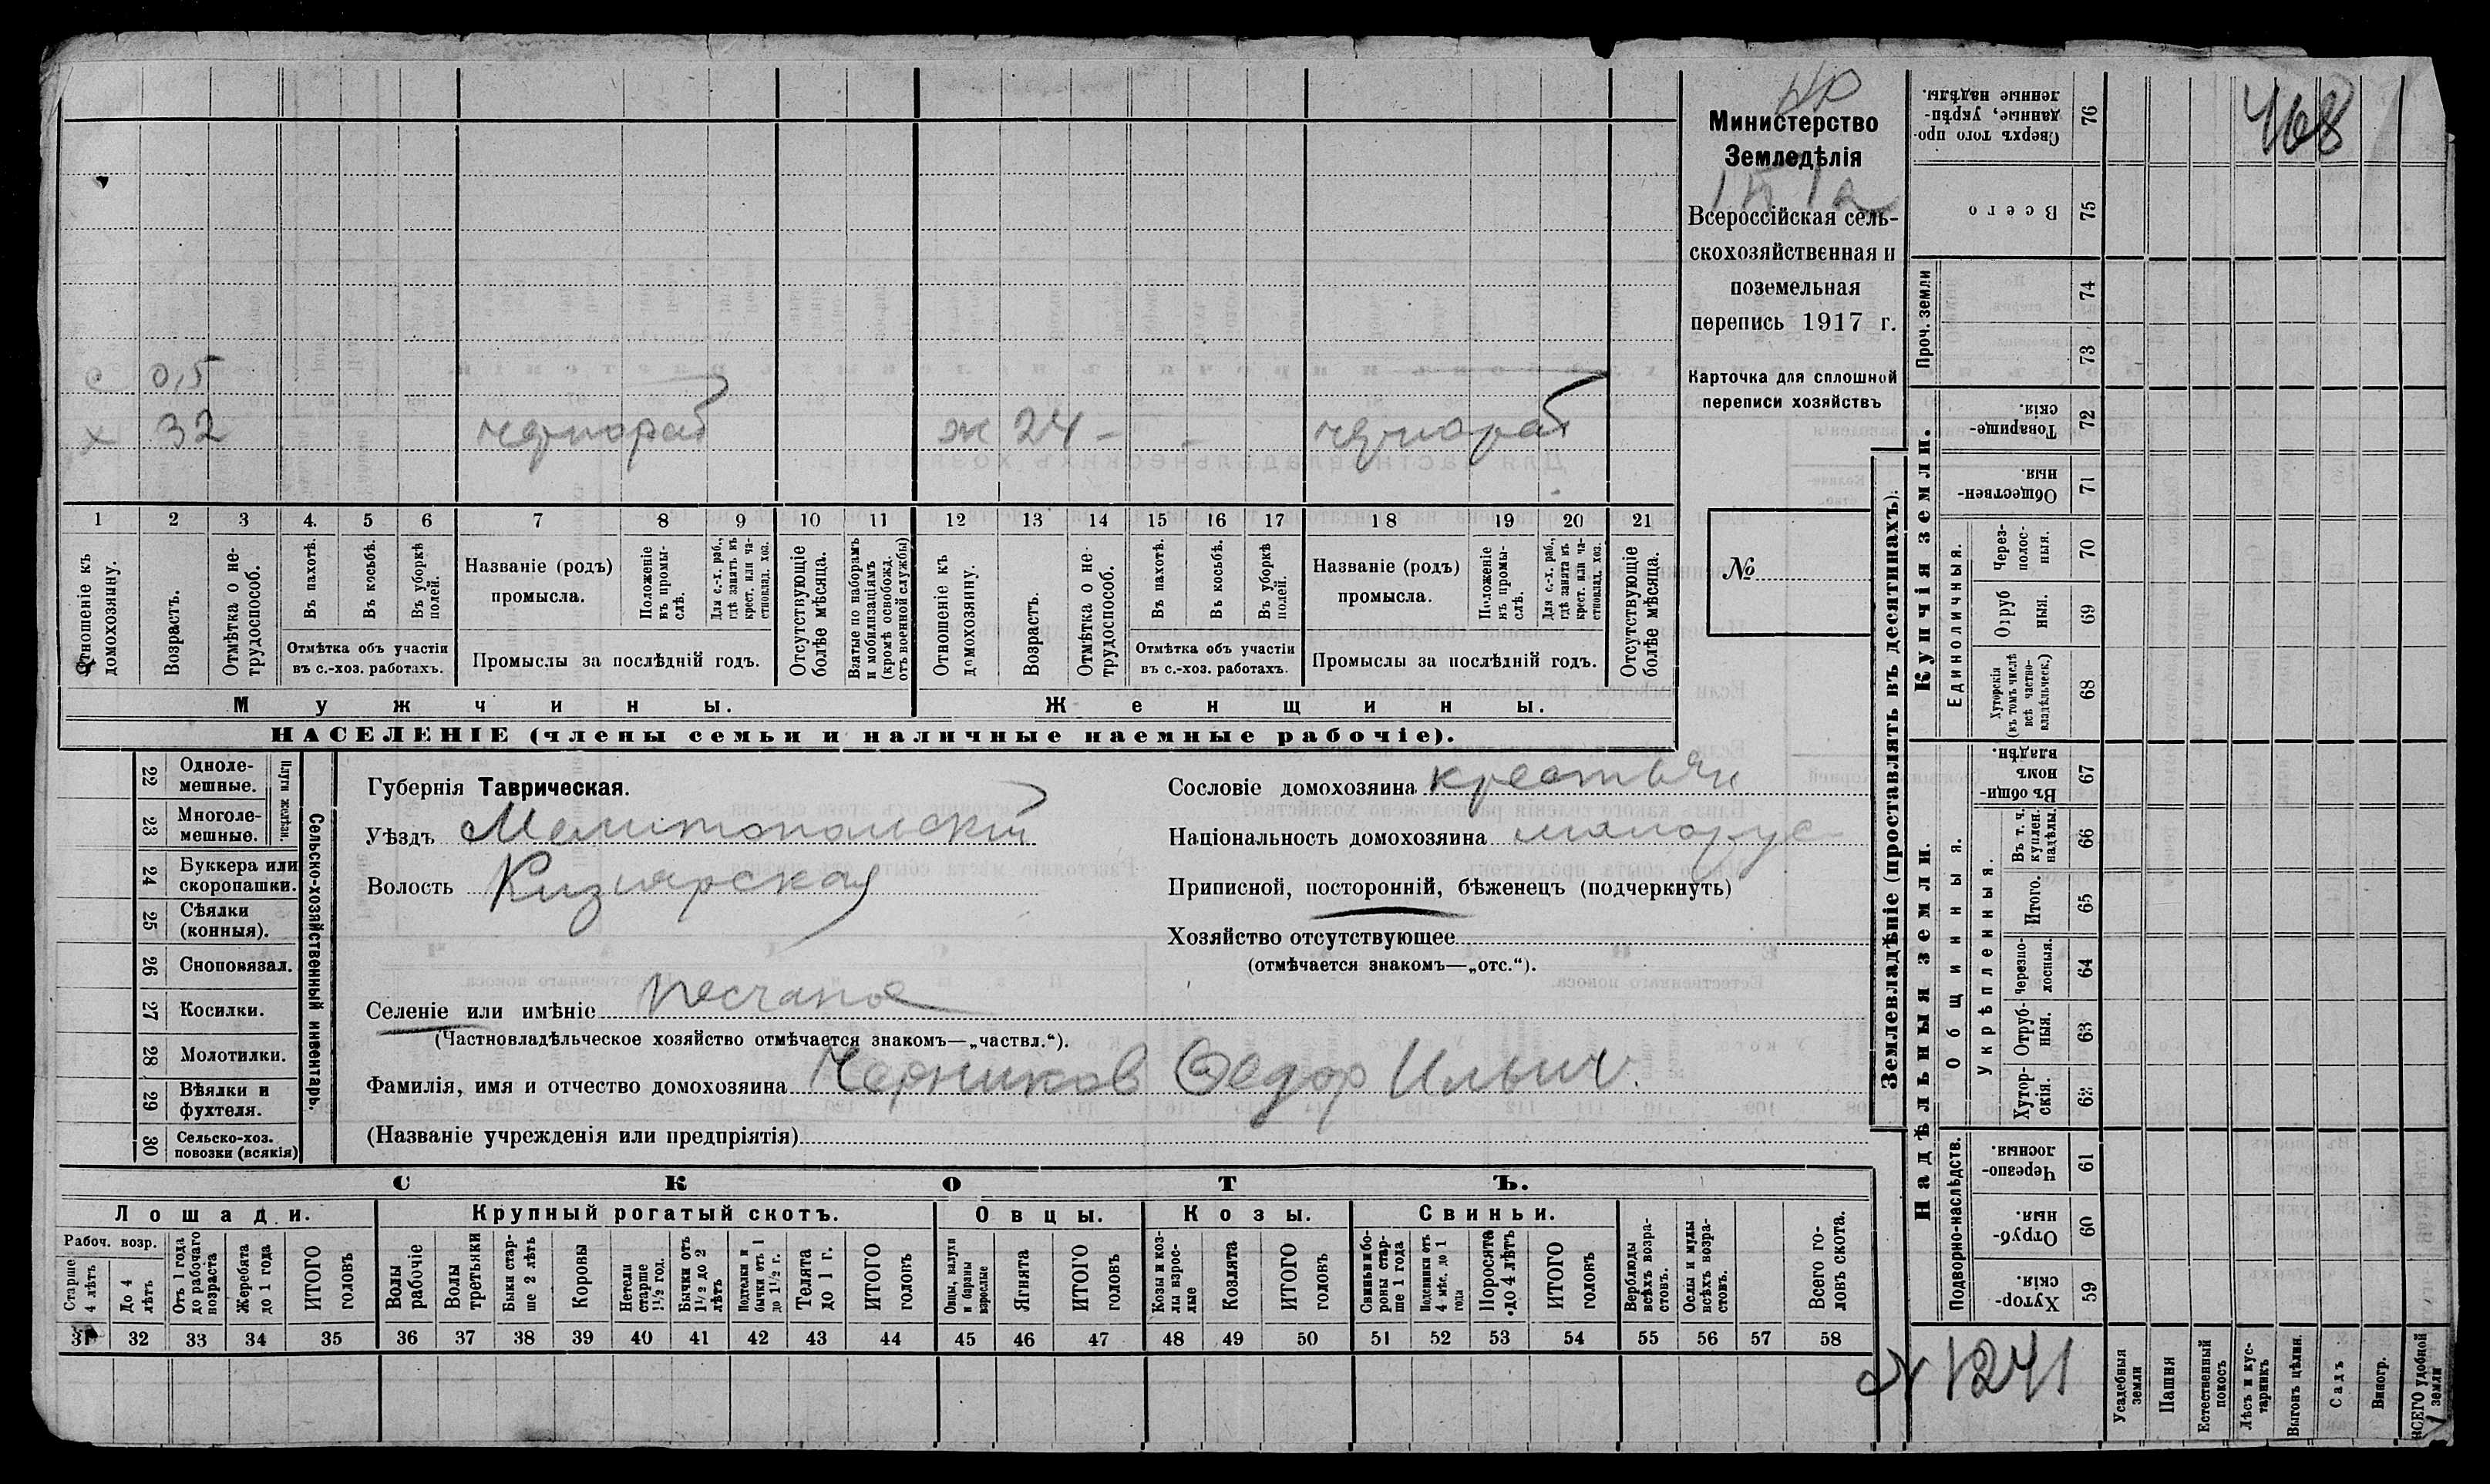 НР
Министерство
Земледѣлія
Всероссійская сель-
скохозяйственная и
поземельная
перепись 1917 г.
Карточка для сплошной
переписи хозяйствъ
№
с 0,5
х 32 чернораб ж 24 - - чернораб
1 2 3 4. 5 6 7 8 9 10 11 12 13 14 15 16 17 18 19 20 21
Отношеніе къ домохозяину.
Возрастъ.
Отмѣтка о не-трудоспособ.
Въ пахотѣ.
Въ косьбѣ.
Въ уборкѣ полей.
Отмѣтка объ участіи
въ с.-хоз. работахъ.
Названіе (родъ)
промысла.
Положеніе въ промы-слѣ.
Для с.-х. раб., гдѣ занятъ въ крест. или ча-стновлад. хоз.
Промыслы за послѣдній годъ.
Отсутствующіе болѣе мѣсяца.
Взятые по наборамъ и мобилизаціямъ (кромѣ освобожд. отъ военной службы)
Отношеніе къ домохозяину.
Возрастъ.
Отмѣтка о не-трудоспособ.
Въ пахотѣ.
Въ косьбѣ.
Въ уборкѣ полей.
Отмѣтка объ участіи
въ с.-хоз. работахъ.
Названіе (родъ)
промысла.
Положеніе въ промы-слѣ.
Для с.-х. раб., гдѣ занята въ крест. или ча-стновлад. хоз.
Промыслы за послѣдній годъ.
Отсутствующіе болѣе мѣсяца.
Мужчины. Женщины.
НАСЕЛЕНІЕ (члены семьи и наличные наемные рабочіе).
Сельско-хозяйственный инвентарь.
Плуги желѣзн.
22 Одноле-мешные.
23 Многоле-мешные.
24 Буккера или скоропашки.
25 Сѣялки (конныя).
26 Сноповязал.
27 Косилки.
28 Молотилки.
29 Вѣялки и фухтеля.
30 Сельско-хоз. повозки (всякія)
Губернія Таврическая.
Уѣздъ Мелитопольскій
Волость Кизиярская
Селеніе или имѣніе Песчаное
(Частновладѣльческое хозяйство отмѣчается знакомъ—„частвл.“).
Фамилія, имя и отчество домохозяина Черников Федор Ильич.
(Названіе учрежденія или предпріятія)
Сословіе домохозяина крестьян
Національность домохозяина малорус
Приписной, посторонній, бѣженецъ (подчеркнуть)
Хозяйство отсутствующее
(отмѣчается знакомъ—„отс.“).
СКОТЪ.
Лошади. Крупный рогатый скотъ. Овцы. Козы. Свиньи.
Рабоч. возр.
Старше 4 лѣтъ
До 4 лѣтъ
Отъ 1 года до рабочаго возраста
Жеребята до 1 года
ИТОГО головъ
Волы рабочіе
Волы третьяки
Быки стар-ше 2 лѣтъ
Коровы
Нетели старше 1½ год.
Бычки отъ 1½ до 2 лѣтъ
Подтелки и бычки отъ 1 до 1½ г.
Телята до 1 г.
ИТОГО головъ
Овцы, валухи и бараны взрослые
Ягнята
ИТОГО головъ
Козы и коз-лы взрос-лые
Козлята
ИТОГО головъ
Свиньи и бо-ровы стар-ше 1 года
Подсвинки отъ 4 мѣс. до 1 года
Поросята до 4 лѣтъ
ИТОГО головъ
Верблюды всѣхъ возра-стовъ.
Ослы и мулы всѣхъ возра-стовъ.
Всего го-ловъ скота.
31 32 33 34 35 36 37 38 39 40 41 42 43 44 45 46 47 48 49 50 51 52 53 54 55 56 57 58
Землевладѣніе (проставлять въ десятинахъ).
Надѣльныя земли. Купчія земли. Проч. земли
Подворно-наслѣдств.
Общинныя.
Укрѣпленныя.
Единоличныя.
468
Сверхъ того про-данные, укрѣп-ленные надѣлы. 76
Всего 75
74
73
Товарище-скія. 72
Обществен-ныя. 71
Через-полос-ныя. 70
Отруб ныя. 69
Хуторскія (въ томъ числѣ всѣ частно-владѣльческ.) 68
Въ общи-номъ владѣн. 67
Въ т. ч. куплен. надѣлы. 66
Итого. 65
Черезпо-лосныя. 64
Отруб-ныя. 63
Хутор-скія. 62
Черезпо-лосныя. 61
Отруб-ныя. 60
Хутор-скія. 59
1241
Усадебныя земли
Пашня
Естественный покосъ
Лѣсъ и кус-тарникъ
Выгонъ цѣлин.
Садъ
Виногр.
ВСЕГО удобной земли